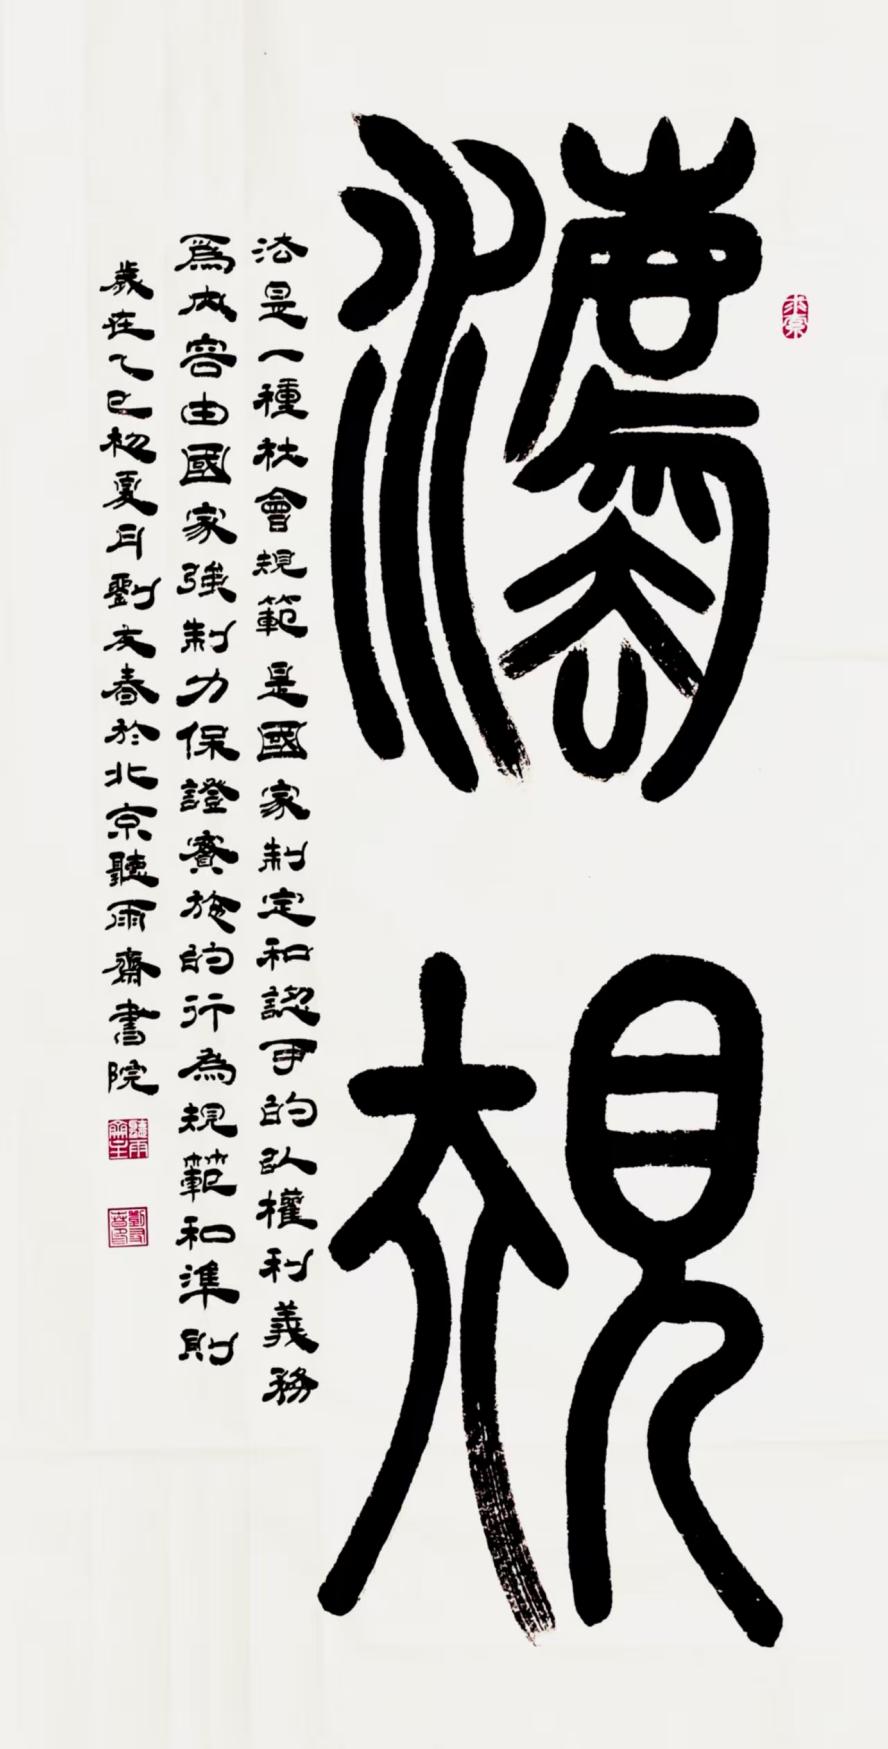 灋規
法是一種社會規範是國家制定和認可的以權利義務
爲内容由國家強制力保證實施的行為規範和準則
歲在乙巳初夏月劉友春於北京聽雨齋書院
聽雨齋主
劉友春印